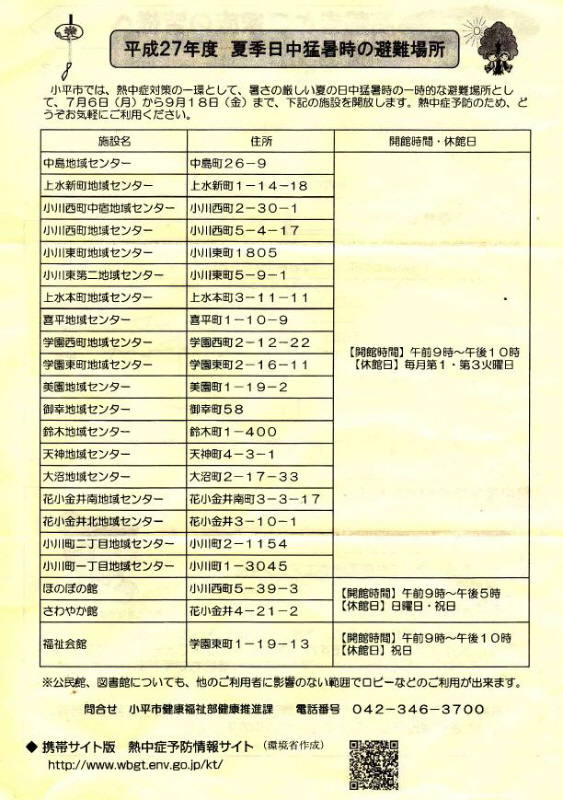 平成27年度 夏季日中猛暑時の避難場所
小平市では、熱中症対策の一環として、暑さの厳しい夏の日中猛暑時の一時的な避難場所とし
て、7月6日（月）から9月18日（金）まで、下記の施設を開放します。熱中症予防のため、ど
うぞお気軽にご利用ください。
施設名 住所 開館時間・休館日
中島地域センター 中島町26－9
上水新町地域センター 上水新町1－14－18
小川西町中宿地域センター 小川西町2－30－1
小川西町地域センター 小川西町5－4－17
小川東町地域センター 小川東町1805
小川東第二地域センター 小川東町5－9－1
上水本町地域センター 上水本町3－11－11
喜平地域センター 喜平町1－10－9
学園西町地域センター 学園西町2－12－22
学園東町地域センター 学園東町2－16－11
美園地域センター 美園町1－19－2
御幸地域センター 御幸町58
鈴木地域センター 鈴木町1－400
天神地域センター 天神町4－3－1
大沼地域センター 大沼町2－17－33
花小金井南地域センター 花小金井南町3－3－17
花小金井北地域センター 花小金井3－10－1
小川町二丁目地域センター 小川町2－1154
小川町一丁目地域センター 小川町1－3045
【開館時間】午前9時～午後10時
【休館日】毎月第1・第3火曜日
ほのぼの館 小川西町5－39－3
さわやか館 花小金井4－21－2
【開館時間】午前9時～午後5時
【休館日】日曜日・祝日
福祉会館 学園東町1－19－13
【開館時間】午前9時～午後10時
【休館日】祝日
※公民館、図書館についても、他のご利用者に影響のない範囲でロビーなどのご利用が出来ます。
問合せ 小平市健康福祉部健康推進課 電話番号 042－346－3700
◆ 携帯サイト版 熱中症予防情報サイト（環境省作成）
http://www.wbgt.env.go.jp/kt/